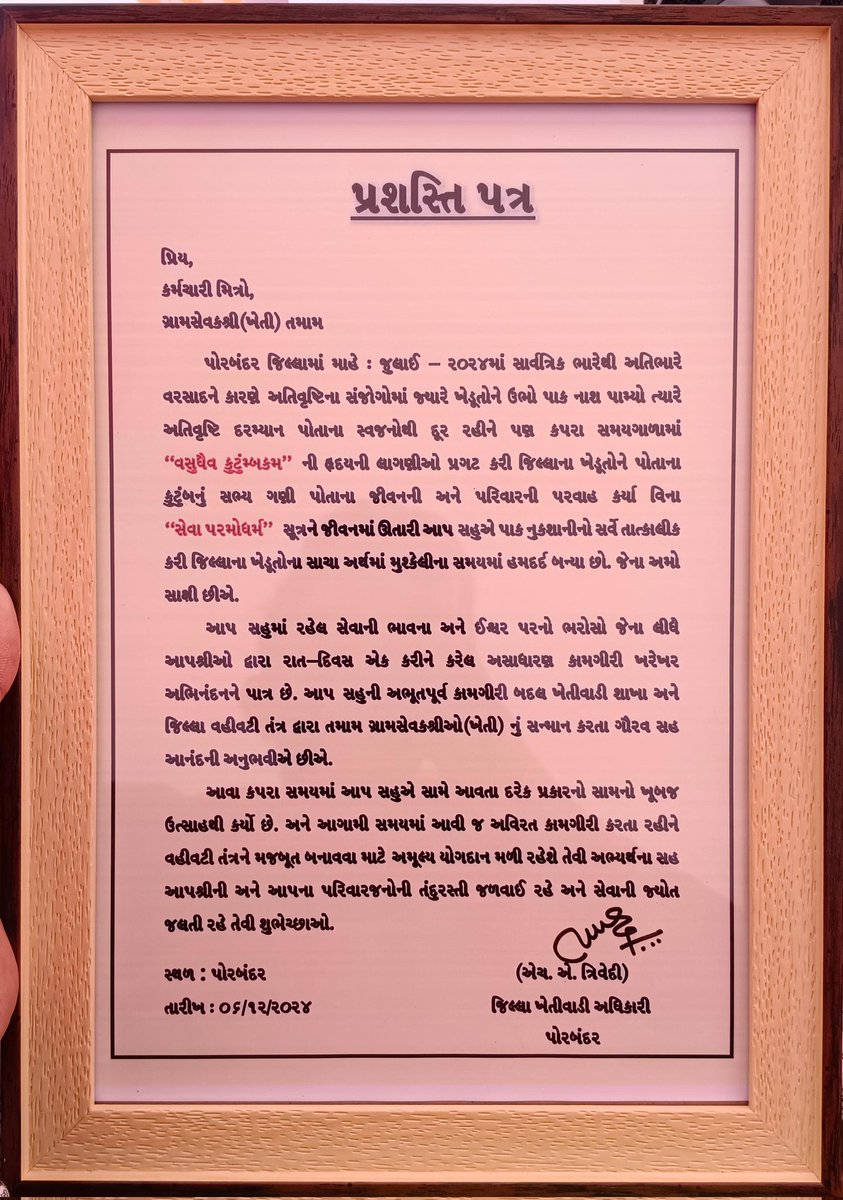 પ્રશસ્તિ પત્ર
પ્રિય,
કર્મચારી મિત્રો,
ગ્રામસેવકશ્રી(ખેતી) તમામ
પોરબંદર જિલ્લામાં માહે : જુલાઈ – ૨૦૨૪માં સાર્વત્રિક ભારેથી અતિભારે
વરસાદને કારણે અતિવૃષ્ટિના સંજોગોમાં જ્યારે ખેડૂતોને ઉભો પાક નાશ પામ્યો ત્યારે
અતિવૃષ્ટિ દરમ્યાન પોતાના સ્વજનોથી દૂર રહીને પણ કપરા સમયગાળામાં
“વસુધૈવ કુટુંમ્બકમ” ની હૃદયની લાગણીઓ પ્રગટ કરી જિલ્લાના ખેડૂતોને પોતાના
કુટુંબનું સભ્ય ગણી પોતાના જીવનની અને પરિવારની પરવાહ કર્યા વિના
“સેવા પરમોધર્મ” સૂત્રને જીવનમાં ઊતારી આપ સહુએ પાક નુકશાનીનો સર્વે તાત્કાલીક
કરી જિલ્લાના ખેડૂતોના સાચા અર્થમાં મુશ્કેલીના સમયમાં હમદર્દ બન્યા છો. જેના અમો
સાક્ષી છીએ.
આપ સહુમાં રહેલ સેવાની ભાવના અને ઈશ્વર પરનો ભરોસો જેના લીધે
આપશ્રીઓ દ્વારા રાત–દિવસ એક કરીને કરેલ અસાધારણ કામગીરી ખરેખર
અભિનંદનને પાત્ર છે. આપ સહુની અભૂતપૂર્વ કામગીરી બદલ ખેતીવાડી શાખા અને
જિલ્લા વહીવટી તંત્ર દ્વારા તમામ ગ્રામસેવકશ્રીઓ(ખેતી) નું સન્માન કરતા ગૌરવ સહ
આનંદની અનુભવીએ છીએ.
આવા કપરા સમયમાં આપ સહુએ સામે આવતા દરેક પ્રકારનો સામનો ખૂબજ
ઉત્સાહથી કર્યો છે. અને આગામી સમયમાં આવી જ અવિરત કામગીરી કરતા રહીને
વહીવટી તંત્રને મજબૂત બનાવવા માટે અમૂલ્ય યોગદાન મળી રહેશે તેવી અભ્યર્થના સહ
આપશ્રીની અને આપના પરિવારજનોની તંદુરસ્તી જળવાઈ રહે અને સેવાની જ્યોત
જલતી રહે તેવી શુભેચ્છાઓ.
સ્થળ : પોરબંદર
(એચ. એ. ત્રિવેદી)
તારીખ : ૦૬/૧૨/૨૦૨૪
જિલ્લા ખેતીવાડી અધિકારી
પોરબંદર